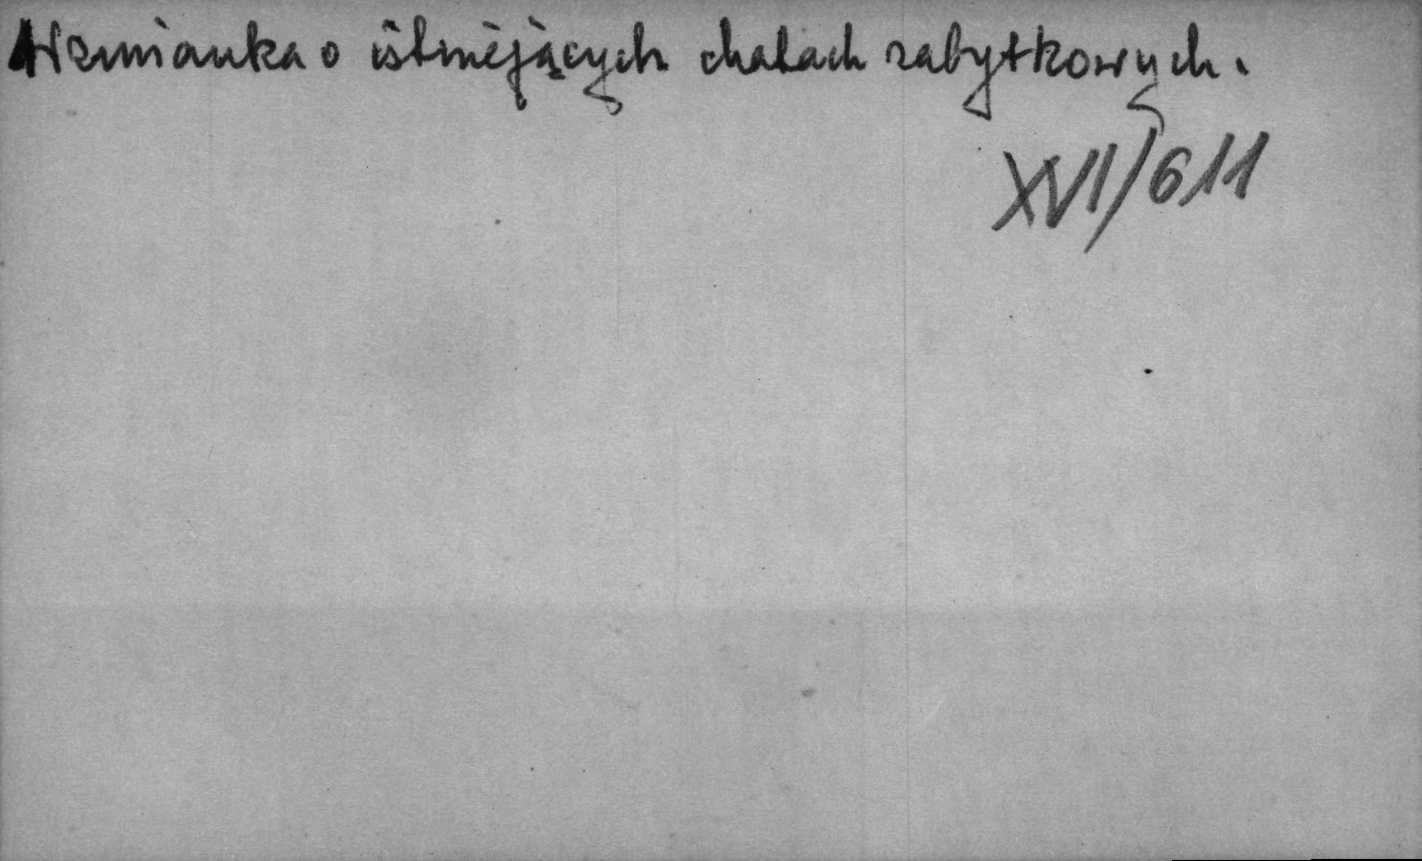 Wzmianka o istniejących chatach zabytkowych.
XVI/611